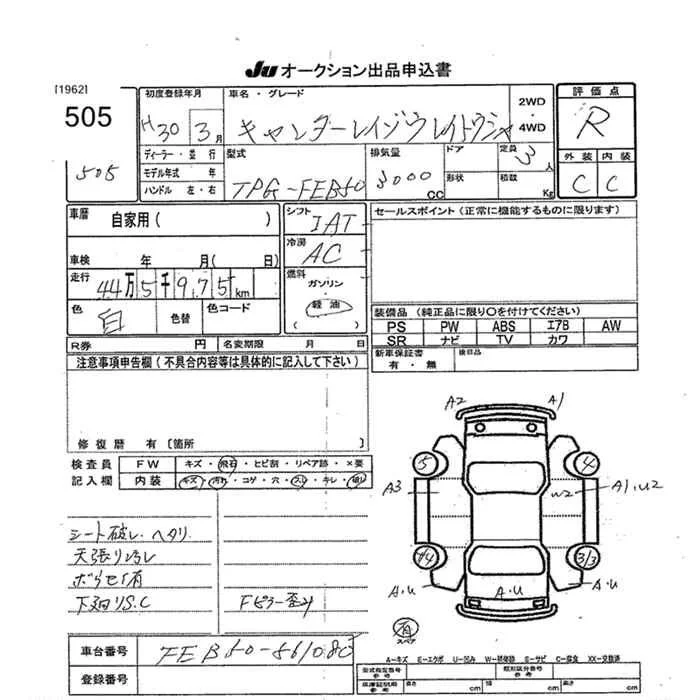 Ju オークション出品申込書
[1962]
505
505
初度登録年月
H30 3月
車名・グレード
キャンターレイゾウレイトウシャ
2WD
4WD
評価点
R
外装 内装
C C
ディーラー・並行
モデル年式 年
ハンドル 左・右
型式
TPG-FEB50
排気量
3000 CC
ドア
形状
定員
3人
積載
Kg
車歴
自家用( )
車検 年 月( 日)
走行
44万5千975km
色 白 色替 色コード
シフト
IAT
冷房
AC
燃料
ガソリン
軽油
( )
セールスポイント(正常に機能するものに限ります)
装備品(純正品に限り○を付けてください)
PS PW ABS エアB AW
SR ナビ TV カワ
新車保証書
有・無
後日品
R券 円 名変期限 月 日
注意事項申告欄(不具合内容等は具体的に記入して下さい)
修復歴 有〔箇所 〕
検査員
記入欄
FW キズ・飛石・ヒビ割・リペア跡・×要
内装 キズ・汚れ・コゲ・穴・スレ・キレ・破れ
シート破レ ヘタリ
天張り
下廻りS.C
Fピラー歪み
A2 A1
5 4
A3 W2 A1,U2
4/4 3/3
A・U A・U A・U
有
スペア
車台番号 FEB50-561080
登録番号
A-キズ E-エクボ U-凹み W-補修跡 S-サビ C-腐食 XX-交換済
型式指定番号
参考
類別区分番号
参考
車庫証明用
参考
長さ cm 幅 cm 高さ cm